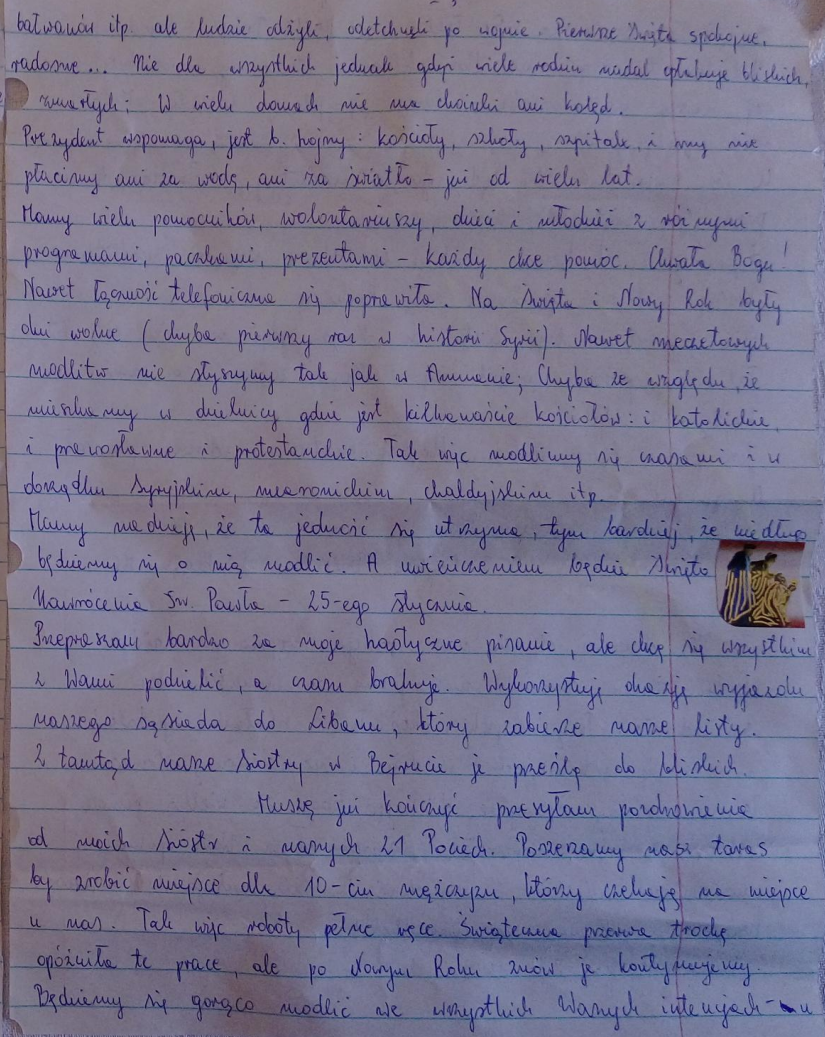 bałwanów itp. ale ludzie odżyli, odetchnęli po wojnie. Pierwsze Święta spokojne,
radosne... Nie dla wszystkich jednak gdyż wiele rodzin nadal opłakuje bliskich,
zmarłych; W wielu domach nie ma choinki ani kolęd.
Prezydent wspomaga, jest b. hojny: kościoły, szkoły, szpitale, i my nie
płacimy ani za wodę, ani za światło – już od wielu lat.
Mamy wielu pomocników, wolontariuszy, dzieci i młodzież z różnymi
programami, paczkami, prezentami – każdy chce pomóc. Chwała Bogu!
Nawet łączność telefoniczna się poprawiła. Na Święta i Nowy Rok były
dni wolne (chyba pierwszy raz w historii Syrii). Nawet meczetowych
modlitw nie słyszymy tak jak w Ammanie; Chyba ze względu, że
mieszkamy w dzielnicy gdzie jest kilkanaście kościołów: i katolickie,
i prawosławne i protestanckie. Tak więc modlimy się czasami i w
obrządku syryjskim, maronickim, chaldyjskim itp.
Mamy nadzieję, że ta jedność się utrzyma, tym bardziej, że niedługo
będziemy się o nią modlić. A uwieńczeniem będzie Święto
Nawrócenia Św. Pawła – 25-ego stycznia.
Przepraszam bardzo za moje haotyczne pisanie, ale chcę się wszystkim
z Wami podzielić, a czasu brakuje. Wykorzystuję okazję wyjazdu
naszego sąsiada do Libanu, który zabierze nasze listy.
Z tamtąd nasze Siostry w Bejrucie je prześlą do bliskich.
Muszę już kończyć przesyłam pozdrowienia
od moich Sióstr i naszych 21 Pociech. Poszerzamy nasz taras
by zrobić miejsce dla 10-ciu mężczyzn, którzy czekają na miejsce
u nas. Tak więc roboty pełne ręce. Świąteczna przerwa trochę
opóźniła te prace, ale po Nowym Roku znów je kontynuujemy.
Będziemy się gorąco modlić we wszystkich Waszych intencjach – u